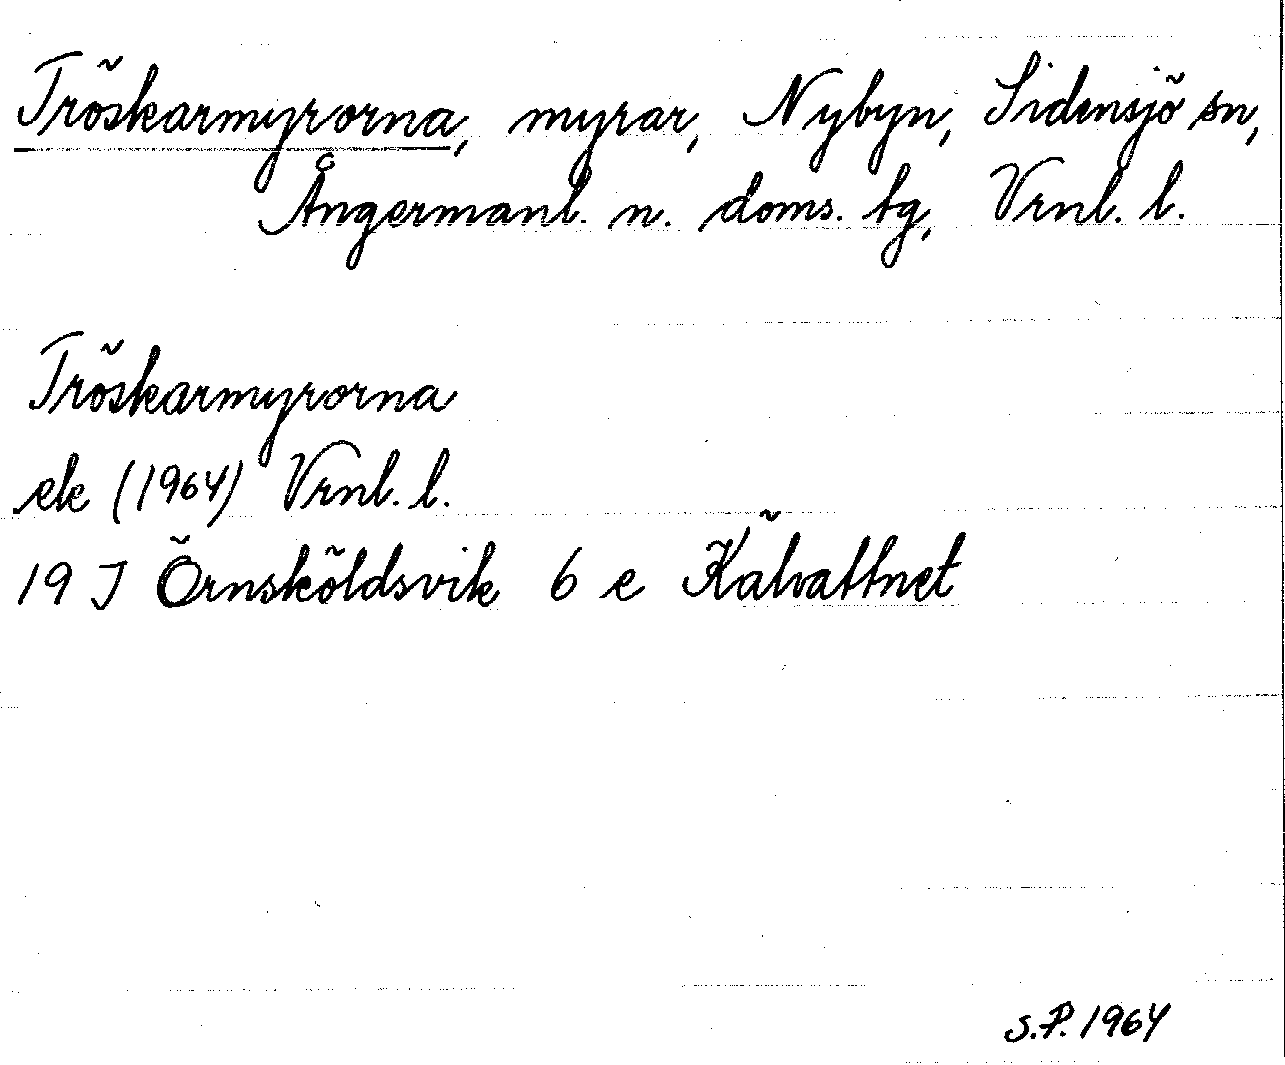 Tröskarmyrorna, myrar, Nybyn, Sidensjö sn,
Ångermanl. n. doms. tg, Vrnl. l.
Tröskarmyrorna
ek (1964) Vrnl. l.
19 J Örnsköldsvik 6 e Kälvattnet
S.P. 1964